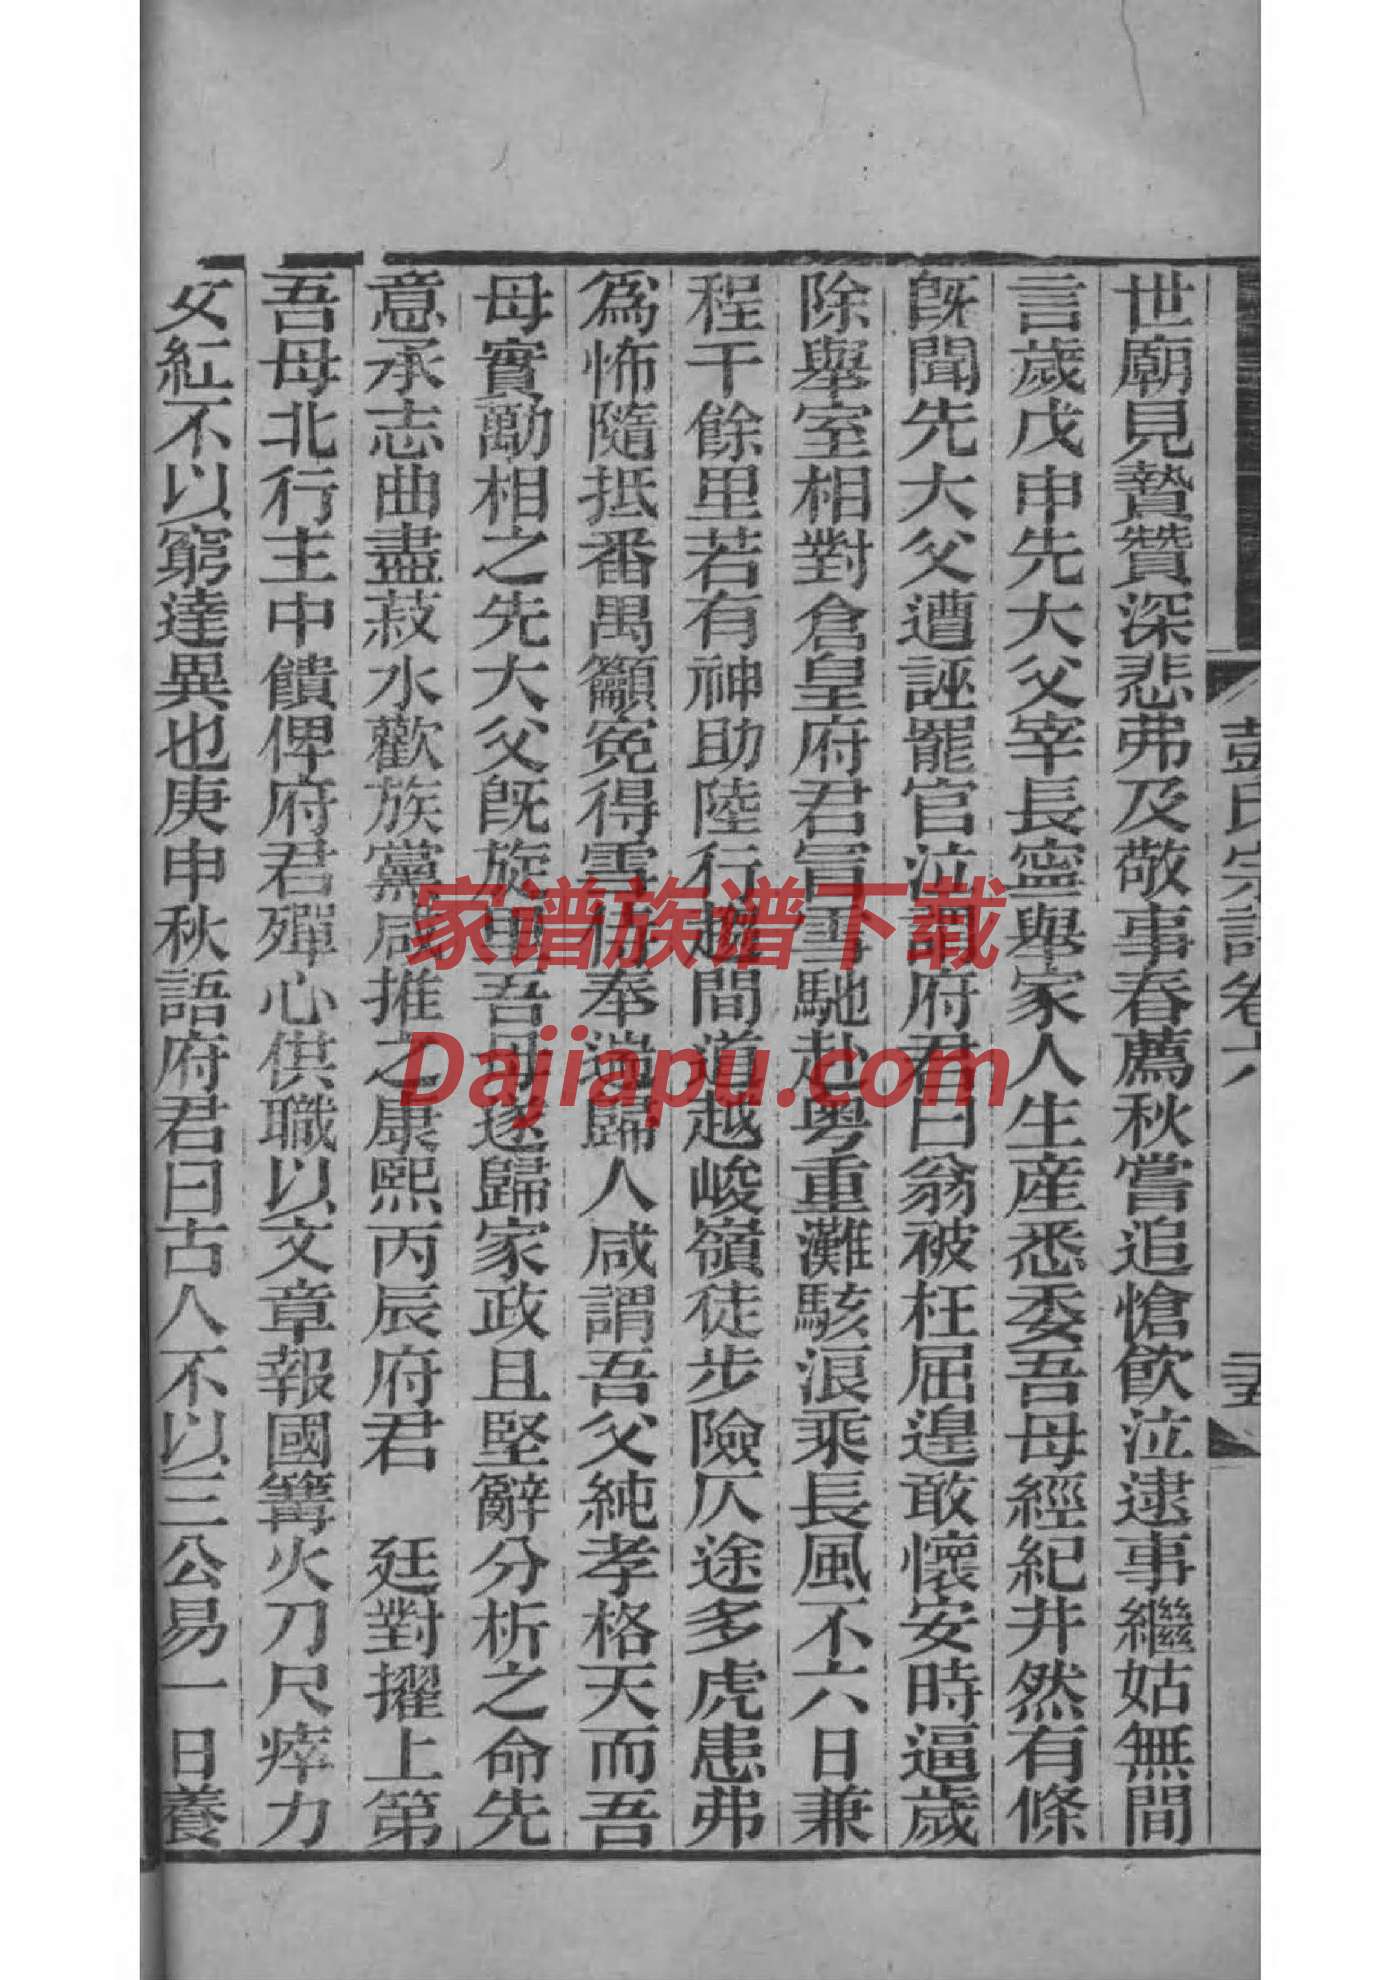 彭氏宗譜卷六
世廟見贄贊深悲弗及敬事春薦秋嘗追愴飮泣逮事繼姑無間
言歲戊申先大父宰長寧舉家人生産悉委吾母經紀井然有條
旣聞先大父遭誣罷官泣謂府君曰翁被枉屈遑敢懷安時逼歲
除舉室相對倉皇府君冒雪馳赴粤重灘駭浪乘長風不六日兼
程千餘里若有神助陸行越間道越峻嶺徒步險仄途多虎患弗
爲怖隨抵番禺籲寃得雪侍奉遄歸人咸謂吾父純孝格天而吾
母實勷相之先大父旣旋里吾母遂歸家政且堅辭分析之命先
意承志曲盡菽水歡族黨咸推之康熙丙辰府君 廷對擢上第
吾母北行主中饋俾府君殫心供職以文章報國篝火刀尺瘁力
女紅不以窮達異也庚申秋語府君曰古人不以三公易一日養
家谱族谱下载
Dajiapu.com